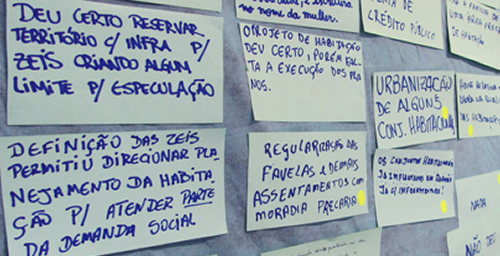 DEU CERTO RESERVAR
TERRITÓRIO C/ INFRA P/
ZEIS CRIANDO ALGUM
LIMITE P/ ESPECULAÇÃO
DEFINIÇÃO DAS ZEIS
PERMITIU DIRECIONAR PLA
NEJAMENTO DA HABITA
ÇÃO P/ ATENDER PARTE
DA DEMANDA SOCIAL
no nome da mulher.
O PROJETO DE HABITAÇÃO
DEU CERTO, PORÉM FAL-
TA A EXECUÇÃO DOS PLA
NOS.
REGULARIZAÇÃO DAS
FAVELAS E DEMAIS
ASSENTAMENTOS COM
MORADIA PRECÁRIA
DE
CRÉDITO PÚBLICO
URBANIZAÇÃO
DE ALGUNS
CONJ. HABITACIONAIS
OS CONJUNTOS HABITACIONAIS
JÁ C/ INFRAESTRUT.
DE HABITAÇÃO
NADA
NÃO